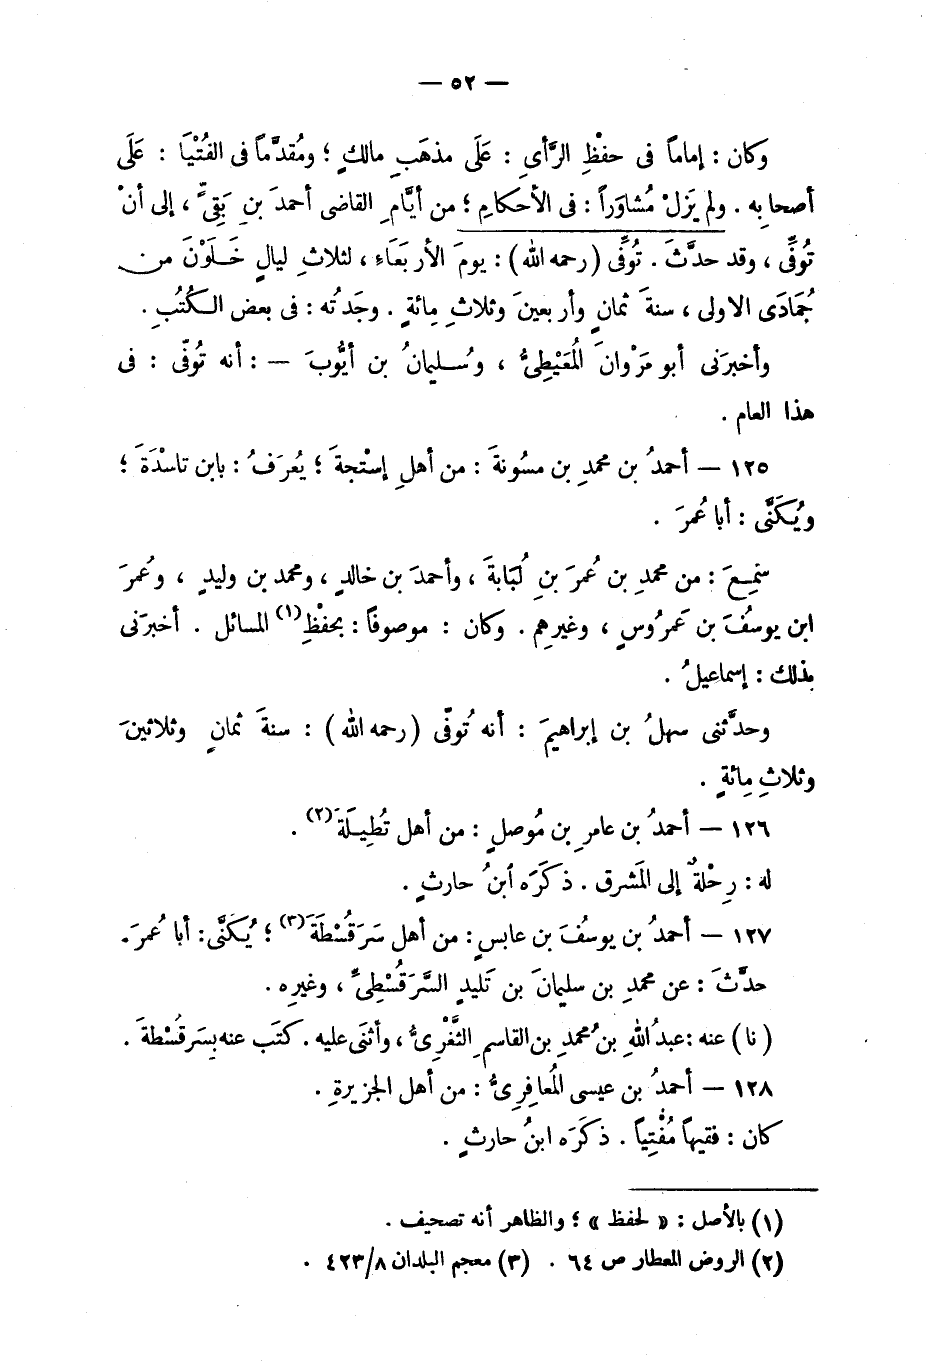 — ٥٢ —
وكان : إماماً فى حفْظِ الرَّأىِ : عَلَى مذهَبِ مالكٍ ؛ ومُقدَّماً فى الفُتْيَا : عَلَى
أصحابِه . ولم يَزَلْ مُشاوَراً : فى الأحكامِ ؛ من أيَّامِ القاضى أحمدَ بنِ بَقِىٍّ ، إلى أنْ
تُوفِّىَ ، وقد حدَّثَ . تُوفِّىَ (رحمه الله) : يومَ الأربعَاءِ ، لثلاثِ ليالٍ خَلَوْنَ من
جُمَادَى الاولى ، سنةَ ثمانٍ وأربعينَ وثلاثِ مِائةٍ . وجَدتُه : فى بعض الكُتُبِ .
وأخبرَنى أبو مَرْوانَ المُعَيْطِىُّ ، وسُليمانُ بن أيُّوبَ — : أنه تُوفّى : فى
هذا العام .
١٢٥ — أحمدُ بن محمدِ بن مسُونةَ : من أهلِ إسْتجةَ ؛ يُعرَفُ : بابن تاسْدَةَ ؛
ويُكَنَّى : أبا عُمرَ .
سَمِعَ : من محمدِ بن عُمرَ بنِ لُبَابةَ ، وأحمدَ بن خالدٍ ، ومحمد بن وليدٍ ، وعُمرَ
ابن يوسُفَ بن عَمرُوسٍ ، وغيرِهم . وكان : موصوفاً : بحفْظِ(١) المسائل . أخبرَنى
بذلك : إسماعيلُ .
وحدَّثنى سهلُ بن إبراهيمَ : أنه تُوفّى (رحمه الله) : سنةَ ثمانٍ وثلاثينَ
وثلاثِ مِائةٍ .
١٢٦ — أحمدُ بن عامرِ بن مُوصلٍ : من أهل تُطِيلَةَ(٢) .
له : رِحْلةٌ إلى المَشرق . ذكَرَه ابنُ حارثٍ .
١٢٧ — أحمدُ بن يوسُفَ بن عابسٍ : من أهل سَرَقُسْطَةَ(٣) ؛ يُكَنَّى : أبا عُمرَ .
حدَّثَ : عن محمدِ بن سليمانَ بن تَليدٍ السَّرَقُسْطِىِّ ، وغيرِه .
(نا) عنه : عبدُ اللهِ بن مُحمدِ بن القاسمِ الثَّغْرِىُّ ، وأثنَى عليه . كتَب عنه بسَرقُسْطةَ .
١٢٨ — أحمدُ بن عيسى المُعافِرِىُّ : من أهل الجزيرةِ .
كان : فقيهاً مُفْتِياً . ذكَرَه ابنُ حارثٍ .
(١) بالأصل : « لحفظ » ؛ والظاهر أنه تصحيف .
(٢) الروض المعطار ص ٦٤ . (٣) معجم البلدان ٨/٤٢٣ .